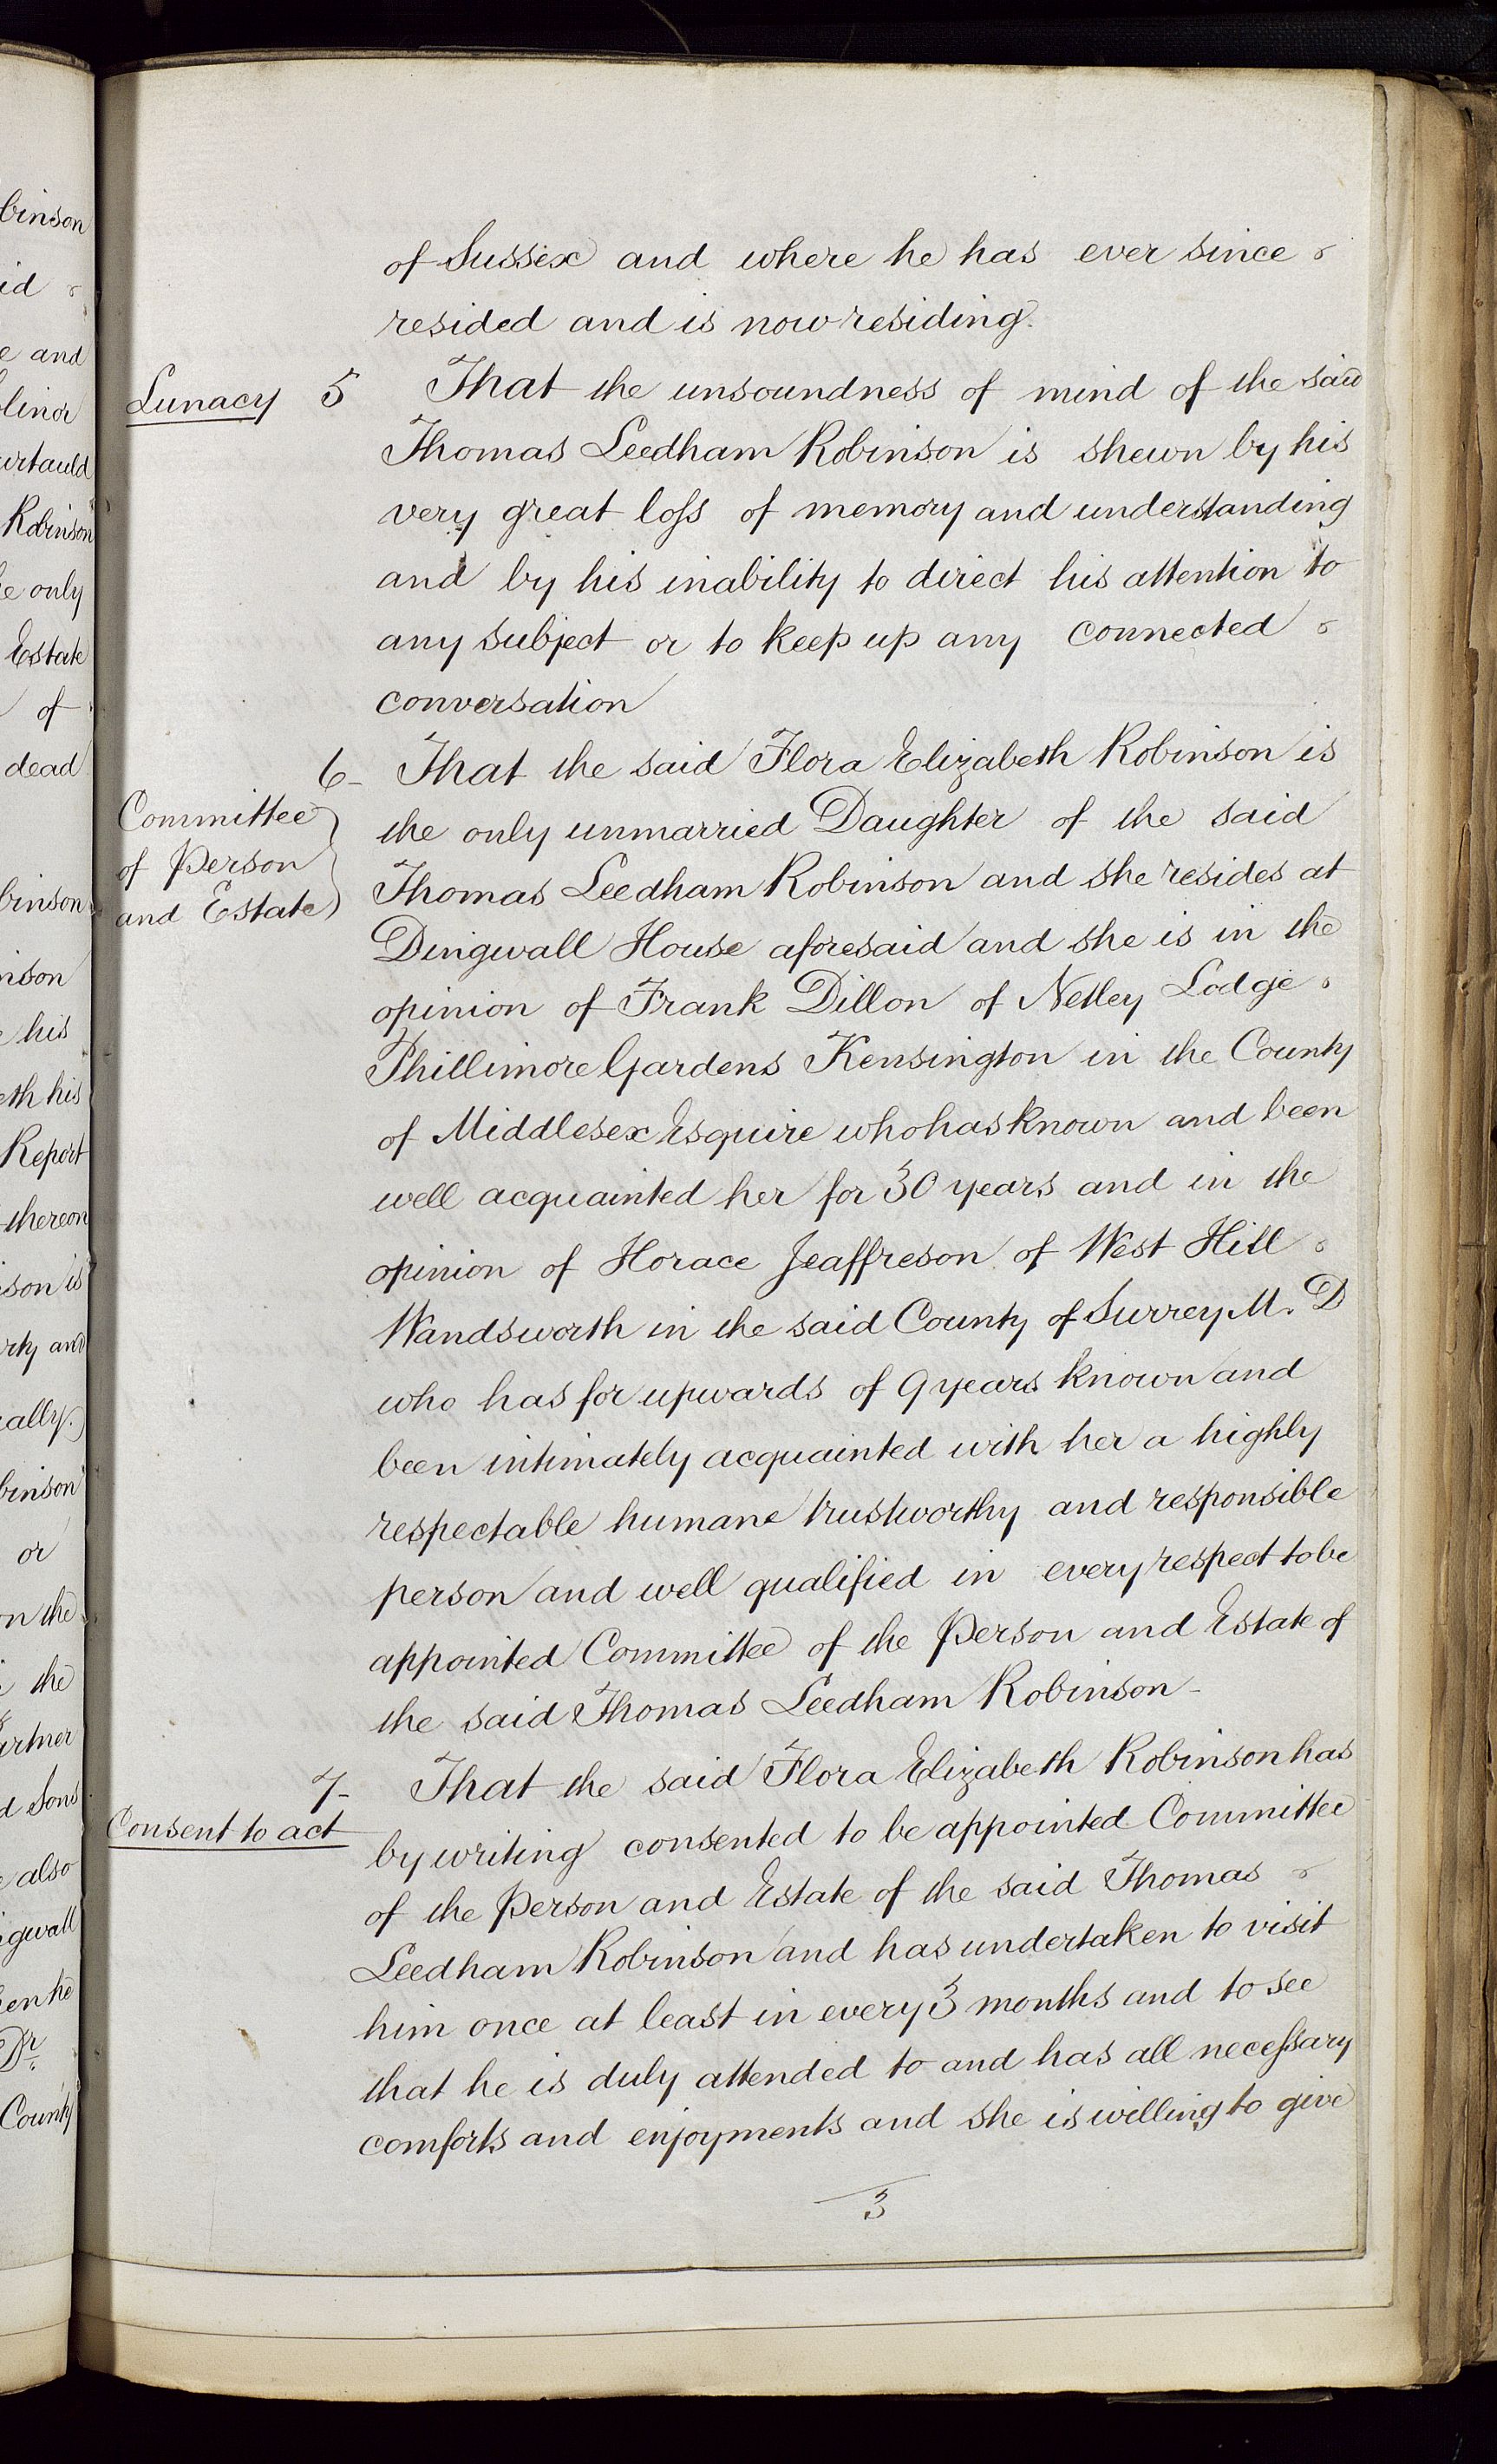 binson
id
e and
linor
urtauld
Robinson
he only
Estate
of
dead
binson
nson
his
eth his
Report
thereon
son is
rty and
ally.
binson
or
on the
the
artner
d Sons
also
gwall
en he
Dr.
County
of Sussex and where he has ever since
resided and is now residing.
Lunacy 5 That the unsoundness of mind of the said
Thomas Leedham Robinson is shewn by his
very great loſs of memory and understanding
and by his inability to direct his attention to
any subject or to keep up any connected
conversation
6- That the said Flora Elizabeth Robinson is
Committee
of Person
and Estate
the only unmarried Daughter of the said
Thomas Leedham Robinson and she resides at
Dingwall House aforesaid and she is in the
opinion of Frank Dillon of Netley Lodge
Phillimore Gardens Kensington in the County
of Middlesex Esquire who has known and been
well acquainted her for 30 years and in the
opinion of Horace Jeaffreson of West Hill
Wandsworth in the said County of Surrey M. D
who has for upwards of 9 years known and
been intimately acquainted with her a highly
respectable humane trustworthy and responsible
person and well qualified in every respect to be
appointed Committee of the Person and Estate of
the said Thomas Leedham Robinson-
7- That the said Flora Elizabeth Robinson has
Consent to act
by writing consented to be appointed Committee
of the Person and Estate of the said Thomas
Leedham Robinson and has undertaken to visit
him once at least in every 3 months and to see
that he is duly attended to and has all neceſsary
comforts and enjoyments and she is willing to give
3